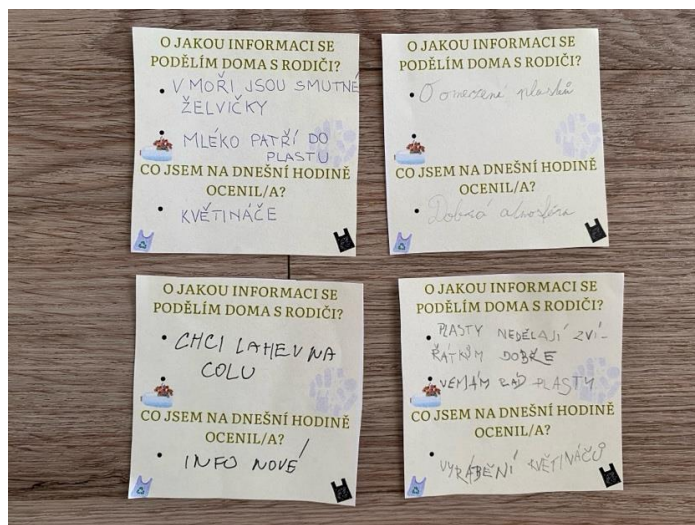 O JAKOU INFORMACI SE
PODĚLÍM DOMA S RODIČI?
• V MOŘI JSOU SMUTNÉ
ŽELVIČKY
• MLÉKO PATŘÍ DO
PLASTU
CO JSEM NA DNEŠNÍ HODINĚ
OCENIL/A?
• KVĚTINÁČE
O JAKOU INFORMACI SE
PODĚLÍM DOMA S RODIČI?
• O omezení plastů
•
CO JSEM NA DNEŠNÍ HODINĚ
OCENIL/A?
• Dobrá atmosféra
O JAKOU INFORMACI SE
PODĚLÍM DOMA S RODIČI?
• CHCI LAHEV NA
COLU
•
CO JSEM NA DNEŠNÍ HODINĚ
OCENIL/A?
• INFO NOVÉ
O JAKOU INFORMACI SE
PODĚLÍM DOMA S RODIČI?
• PLASTY NEDĚLAJÍ ZVÍ-
ŘÁTKŮM DOBŘE
• NEMÁM RÁD PLASTY
CO JSEM NA DNEŠNÍ HODINĚ
OCENIL/A?
• VYRÁBĚNÍ KVĚTINÁČŮ